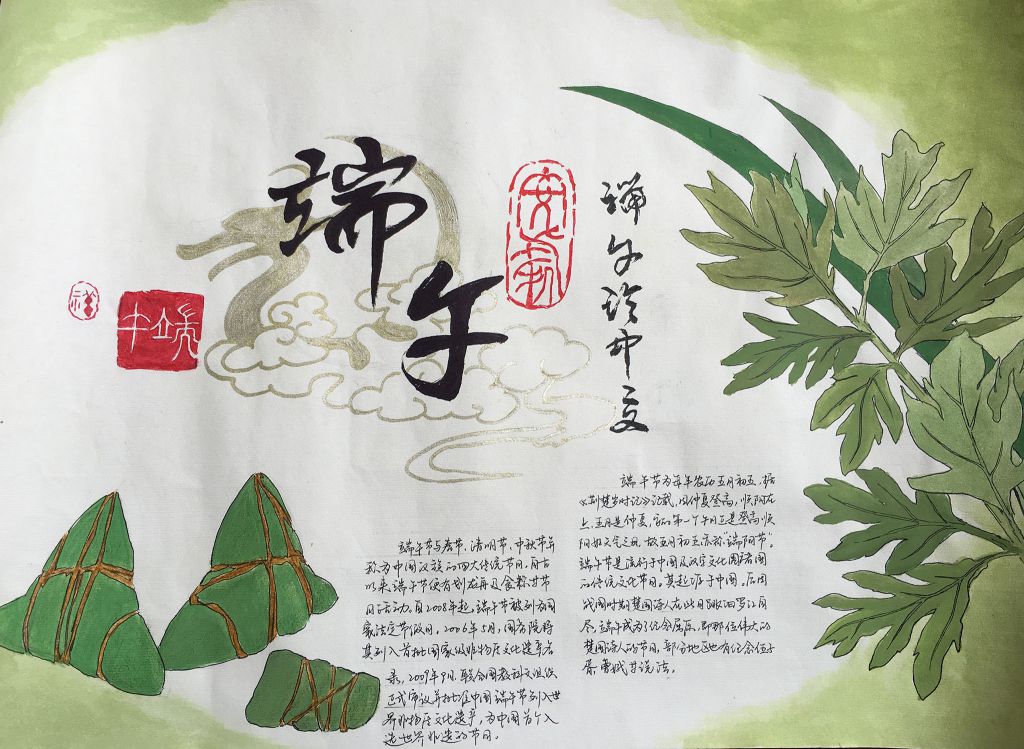 端
午
安康
端午
端午诊中交
端午节为每年农历五月初五,据
《荆楚岁时记》记载,因仲夏登高,顺阳在
上,五月是仲夏,它的第一个午日正是登高顺
阳好天气之日,故五月初五亦称"端阳节"。
端午节是流行于中国及汉字文化圈诸国
的传统文化节日。其起源于中国,后因
战国时期楚国诗人在此日跳汨罗江自
尽,端午成为了纪念屈原,即那位伟大的
楚国诗人的节日,部分地区也有纪念伍子
胥、曹娥等说法。
端午节与春节、清明节、中秋节并
称为中国汉族的四大传统节日。自古
以来端午节便有划龙舟及食粽等节
日活动。自2008年起,端午节被列为国
家法定节假日。2006年5月,国务院将
其列入首批国家级非物质文化遗产名
录,2009年9月,联合国教科文组织
正式审议并批准中国端午节列入世
界非物质文化遗产,为中国首个入
选世界非遗的节日。